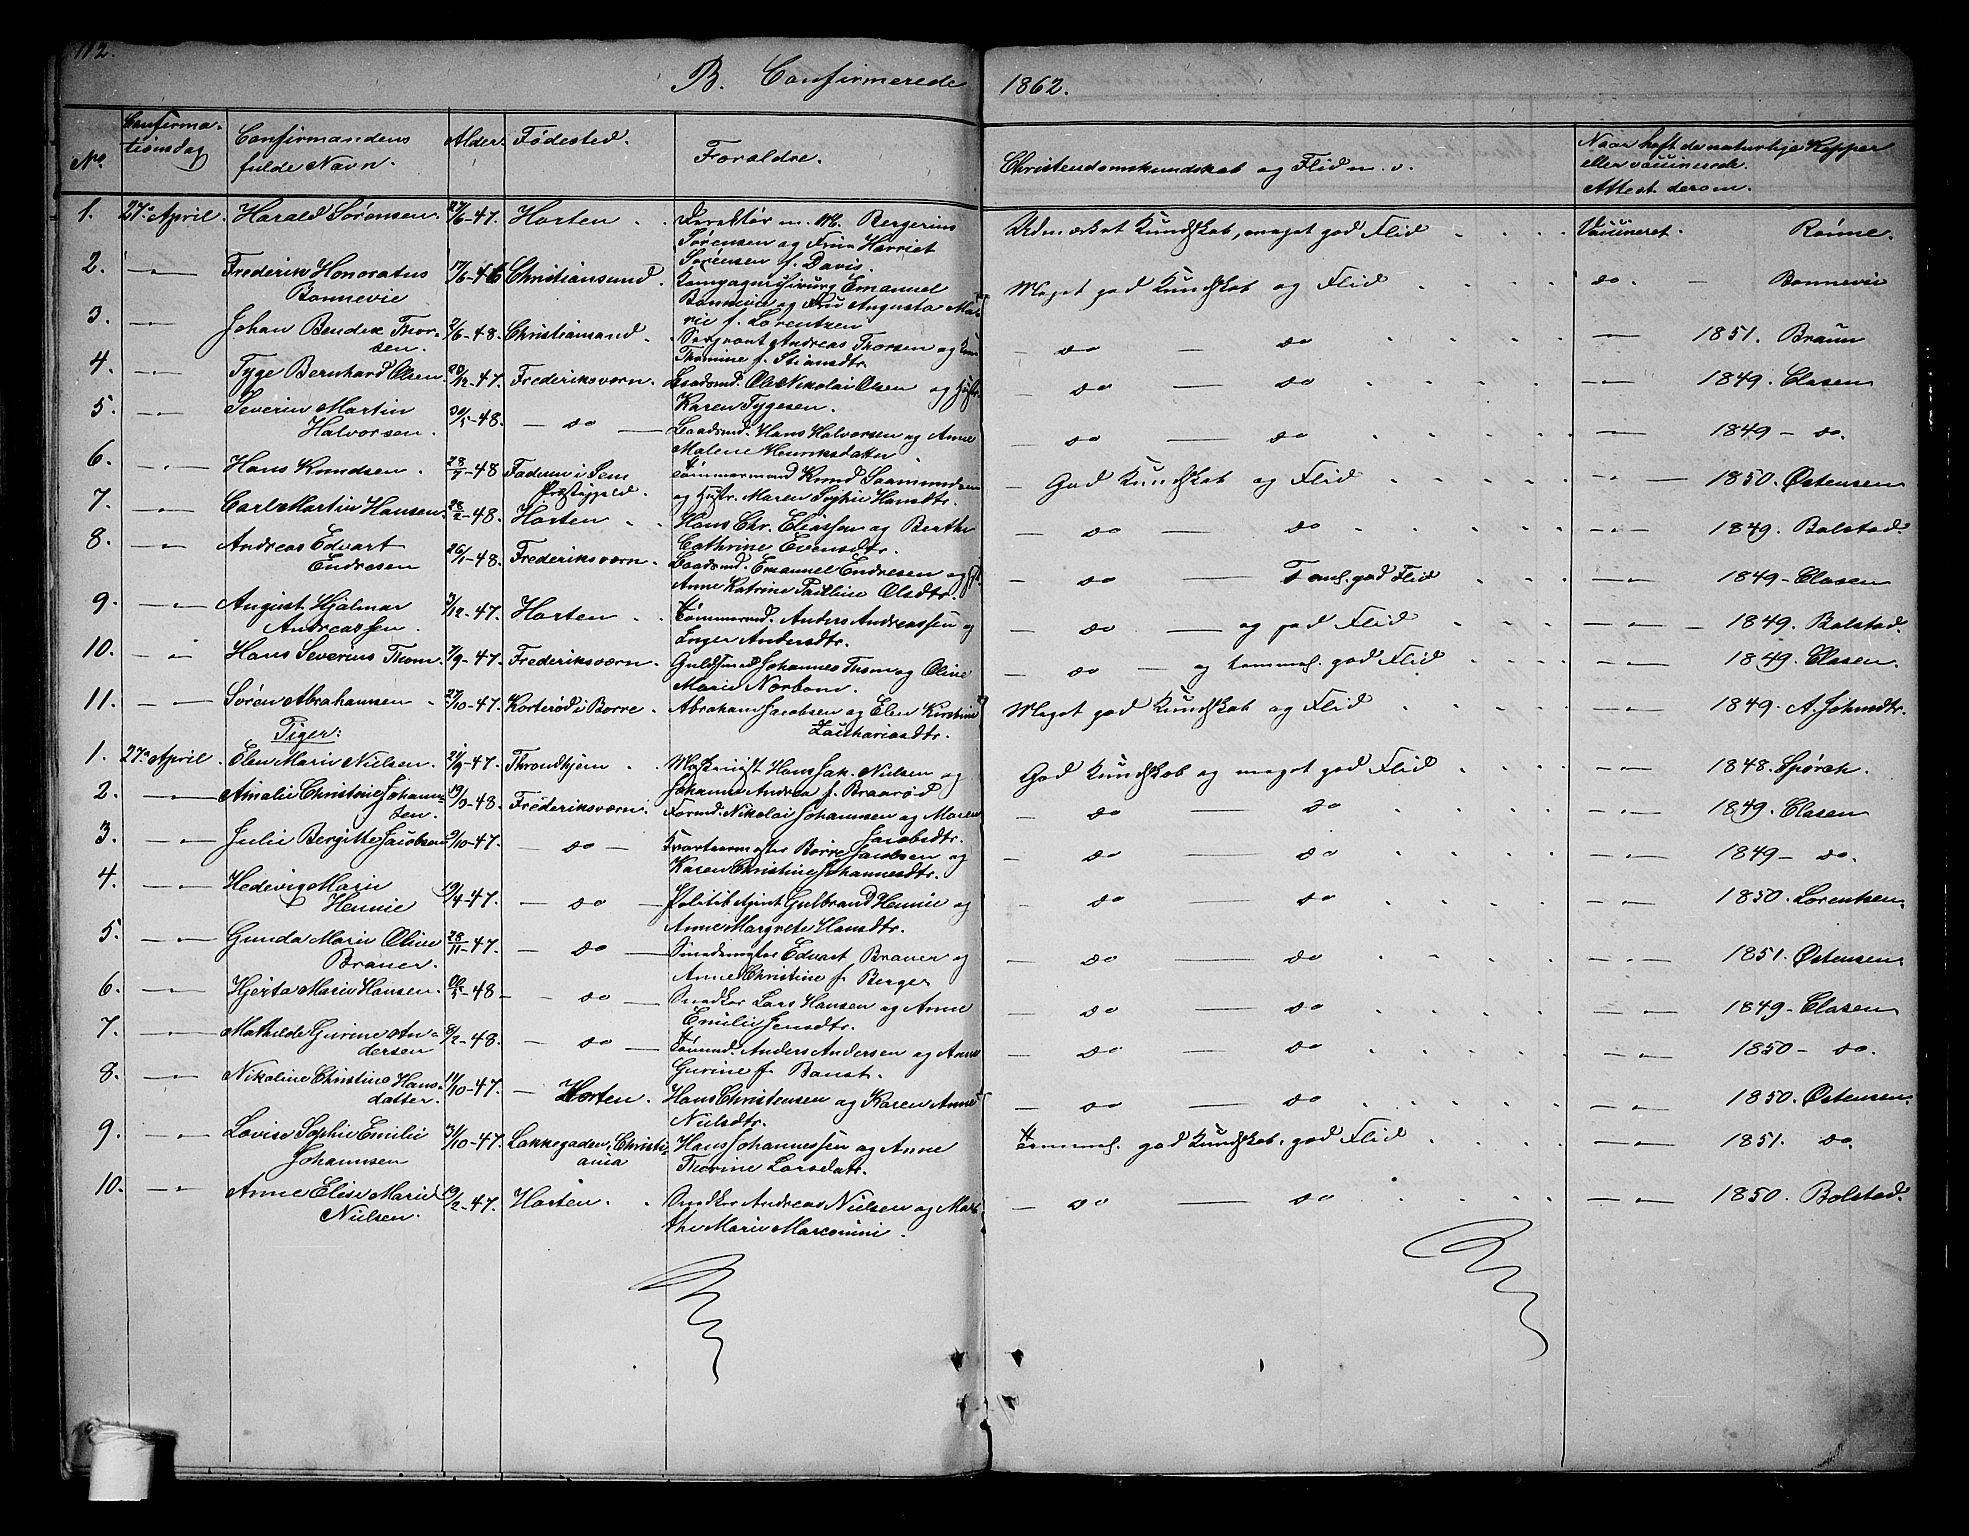 112.
B. Confirmerede 1862.
No. Confirmationsdag Confirmandens fulde Navn. Alder. Fødested. Foraldre. Christendomskundskab og Flid m. v. Naar haft de naturlige Kopper eller vaccinerede. Attest derom.
1. 27de April. Harald Sørensen. 27/6-47. Horten. Direktør m. M. Bergerius Sørensen og Frue Harriet Sørensen f. Davis. Udmærket Kundskab, meget god Flid Vaccineret. Rønne.
2. Frederik Honoratus Bonnevie 17/6-46 Christiansund. Emanuel Bonnevie og Fru Augusta Marie f. Lorentzen Meget god Kundskab og Flid do. Bonnevie
3. Johan Bendix Thorsen. 2/6-48. Christiansand. Sergeant Andreas Thorsen og Thomine f. Stiansdtr. do do 1851. Braun
4. Tyge Bernhard Olsen 20/12-47. Frederiksværn. Baadsmd. Ole Nikolai Olsen og Hustr. Karen Tygesen. do do 1849. Clasen
5. Severin Martin Halvorsen. 30/5-48. do Baadsmd. Hans Halvorsen og Anne Malene Henriksdatter. do do 1849 - do.
6. Hans Knudsen. 28/7-48 Faderen i Sem Præstegjeld. Tømmermand Knud Saamundsen og Hustr. Maren Sophie Hansdtr. God Kundskab og Flid 1850. Østensen
7. Carl Martin Hansen. 28/2-48. Horten Hans Chr. Eliassen og Berthe Cathrine Evensdtr. do do 1849. Bolstad.
8. Andreas Edvart Endresen 26/1-48. Frederiksværn. Baadsmd. Emanuel Endresen og Anne Katrine Pauline Olsdtr. do Taml. god Flid 1849 - Clasen
9. August Hjalmar Andreassen. 3/12-47. Horten. Tømmermd. Anders Andreassen og Inger Andersdtr. do og god Flid 1849. Bolstad.
10. Hans Severius Thom. 7/9-47. Frederiksværn. Guldsmed Johannes Thom og Oline Marie Norbom. do og tammel. god Flid 1849. Clasen.
11. Søren Abrahamsen 27/10-47. Korterød i Borre. Abraham Jacobsen og Elen Kirstine Zachariasdtr. Meget god Kundskab og Flid 1849. A. Johnsdtr.
Piger:
1. 27de April. Elen Marie Nielsen. 21/9-47. Throndhjem Maskinist Hans Jak. Nielsen og Johanne Andrea f. Braarød God Kundskab og meget god Flid 1848. Spørch.
2. Amalie Christine Johannsen. 19/3-48. Frederiksværn. Formd. Nikolai Johannsen og Maren Jacobsdtr. do do 1849. Clasen
3. Julie Bergitte Jacobsen 9/10-47. do Kvarteermester Børre Jacobsen og Karen Christine Johannesdtr. do do 1849 - do.
4. Hedevig Marie Hennie 19/4-47. do Politibetjent Gulbrand Hennie og Anne Margrete Hansdtr. do do 1850. Lorentsen.
5. Gunda Marie Olive Braner. 28/11-47. do Smedemester Edvart Braner og Anne Christine f. Berger do do 1851. Østensen
6. Hjerta Marie Hansen. -48 do Snedker Lars Hansen og Anne Emilie Jensdtr. do do 1849 - Clasen
7. Mathilde Gurine Andersen 8/2-48. do Tømmd. Anders Andersen og Anne Gurine f. Banst. do do 1850 - do.
8. Nikoline Christine Hansdatter. 11/10-47. Horten. Hans Christensen og Karen Anne Nielsdtr. do do 1850. Østensen.
9. Lovise Sophie Emilie Johannsen 3/10-47. Lakkegaden, Christiania Hans Johannessen og Anne Thorine Larsdatr. Tammel. god Kundskab. god Flid 1851. do.
10. Anne Elise Marie Nielsen. 19/2-47. Horten. Snedker Andreas Nielsen og Marthe Marie Marconini. do do 1850. Bolstad.